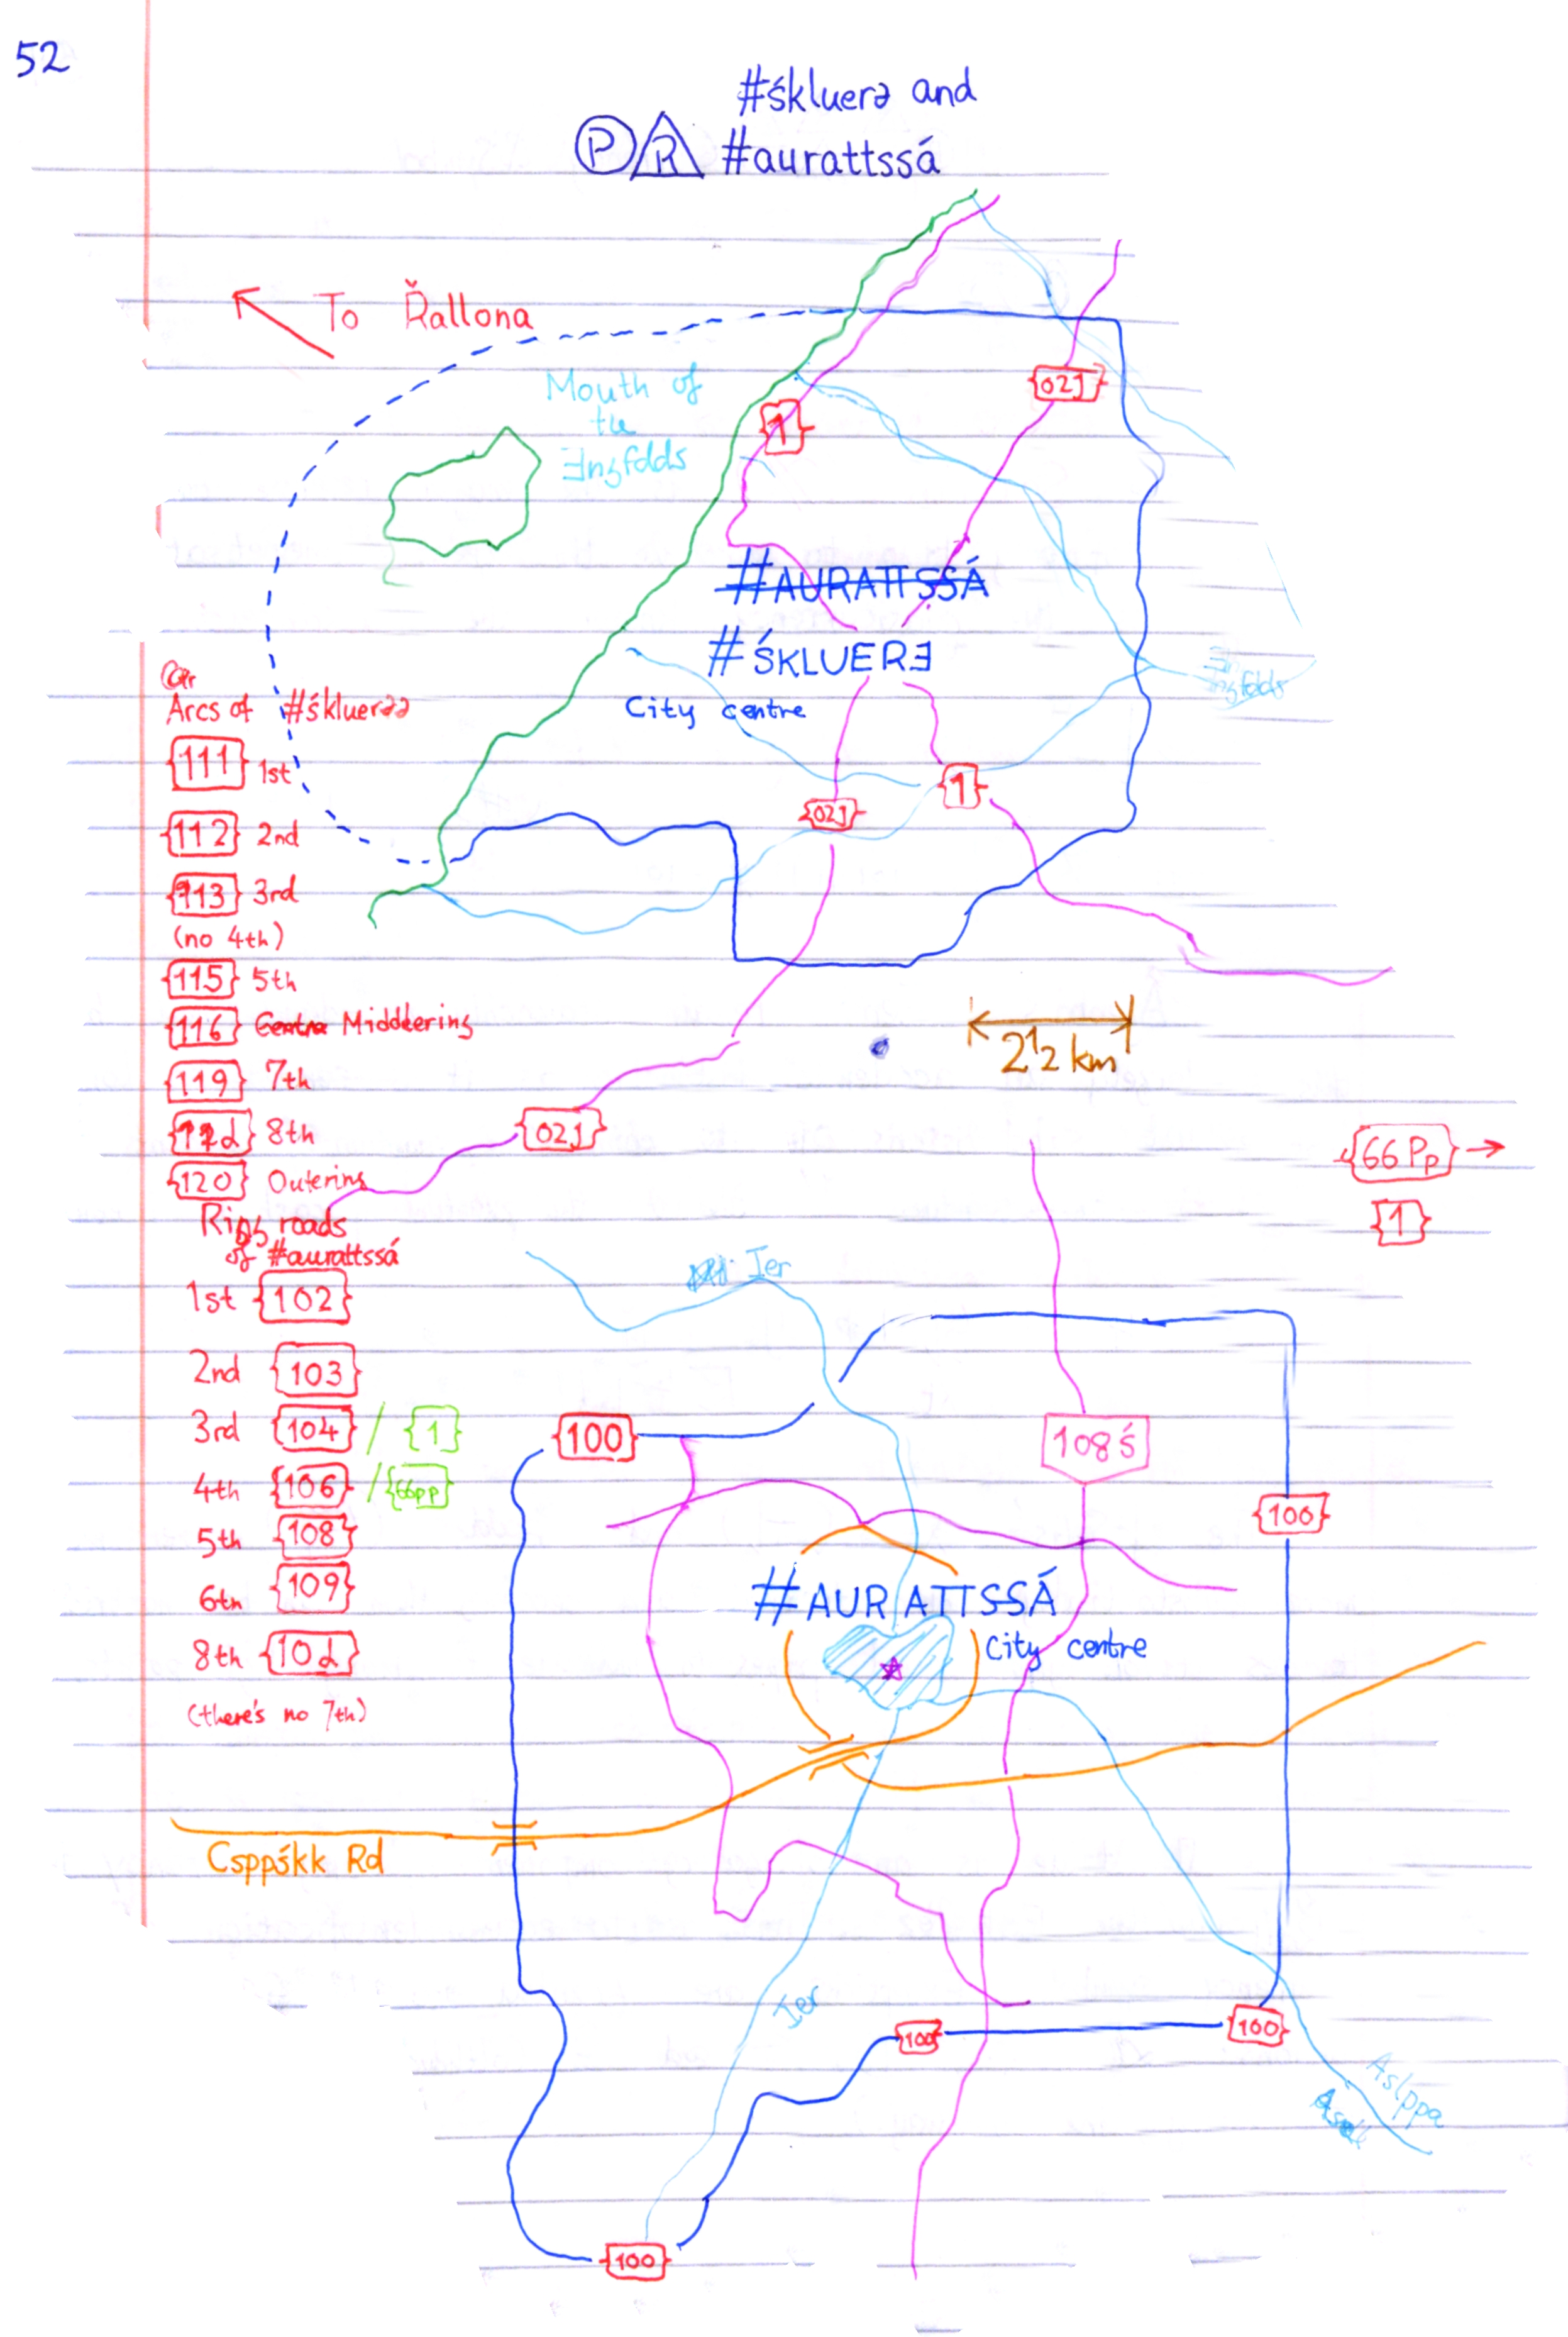 52
#śkluerə and
Ⓟ R #aurattssá
To Řallona
Mouth of
the
Ǝngfdds
{02J}
{1}
#AURATTSSÁ
#ŚKLUERƎ
City centre
Arcs of #śkluerəə
{111} 1st
{112} 2nd
{113} 3rd
(no 4th)
{115} 5th
{116} Centre Middleering
{119} 7th
{11d} 8th
{120} Outering
{02J}
{1}
2½ km
{02J}
{66Pp}
{1}
Ring roads
of #aurattssá
1st {102}
2nd {103}
3rd {104} / {1}
4th {106} / {66pp}
5th {108}
6th {109}
8th {10d}
(there's no 7th)
Ier
{100}
108ś
{100}
#AURATTSSÁ
City centre
Csppśkk Rd
Ier
{100}
{100}
Aslppa
{100}